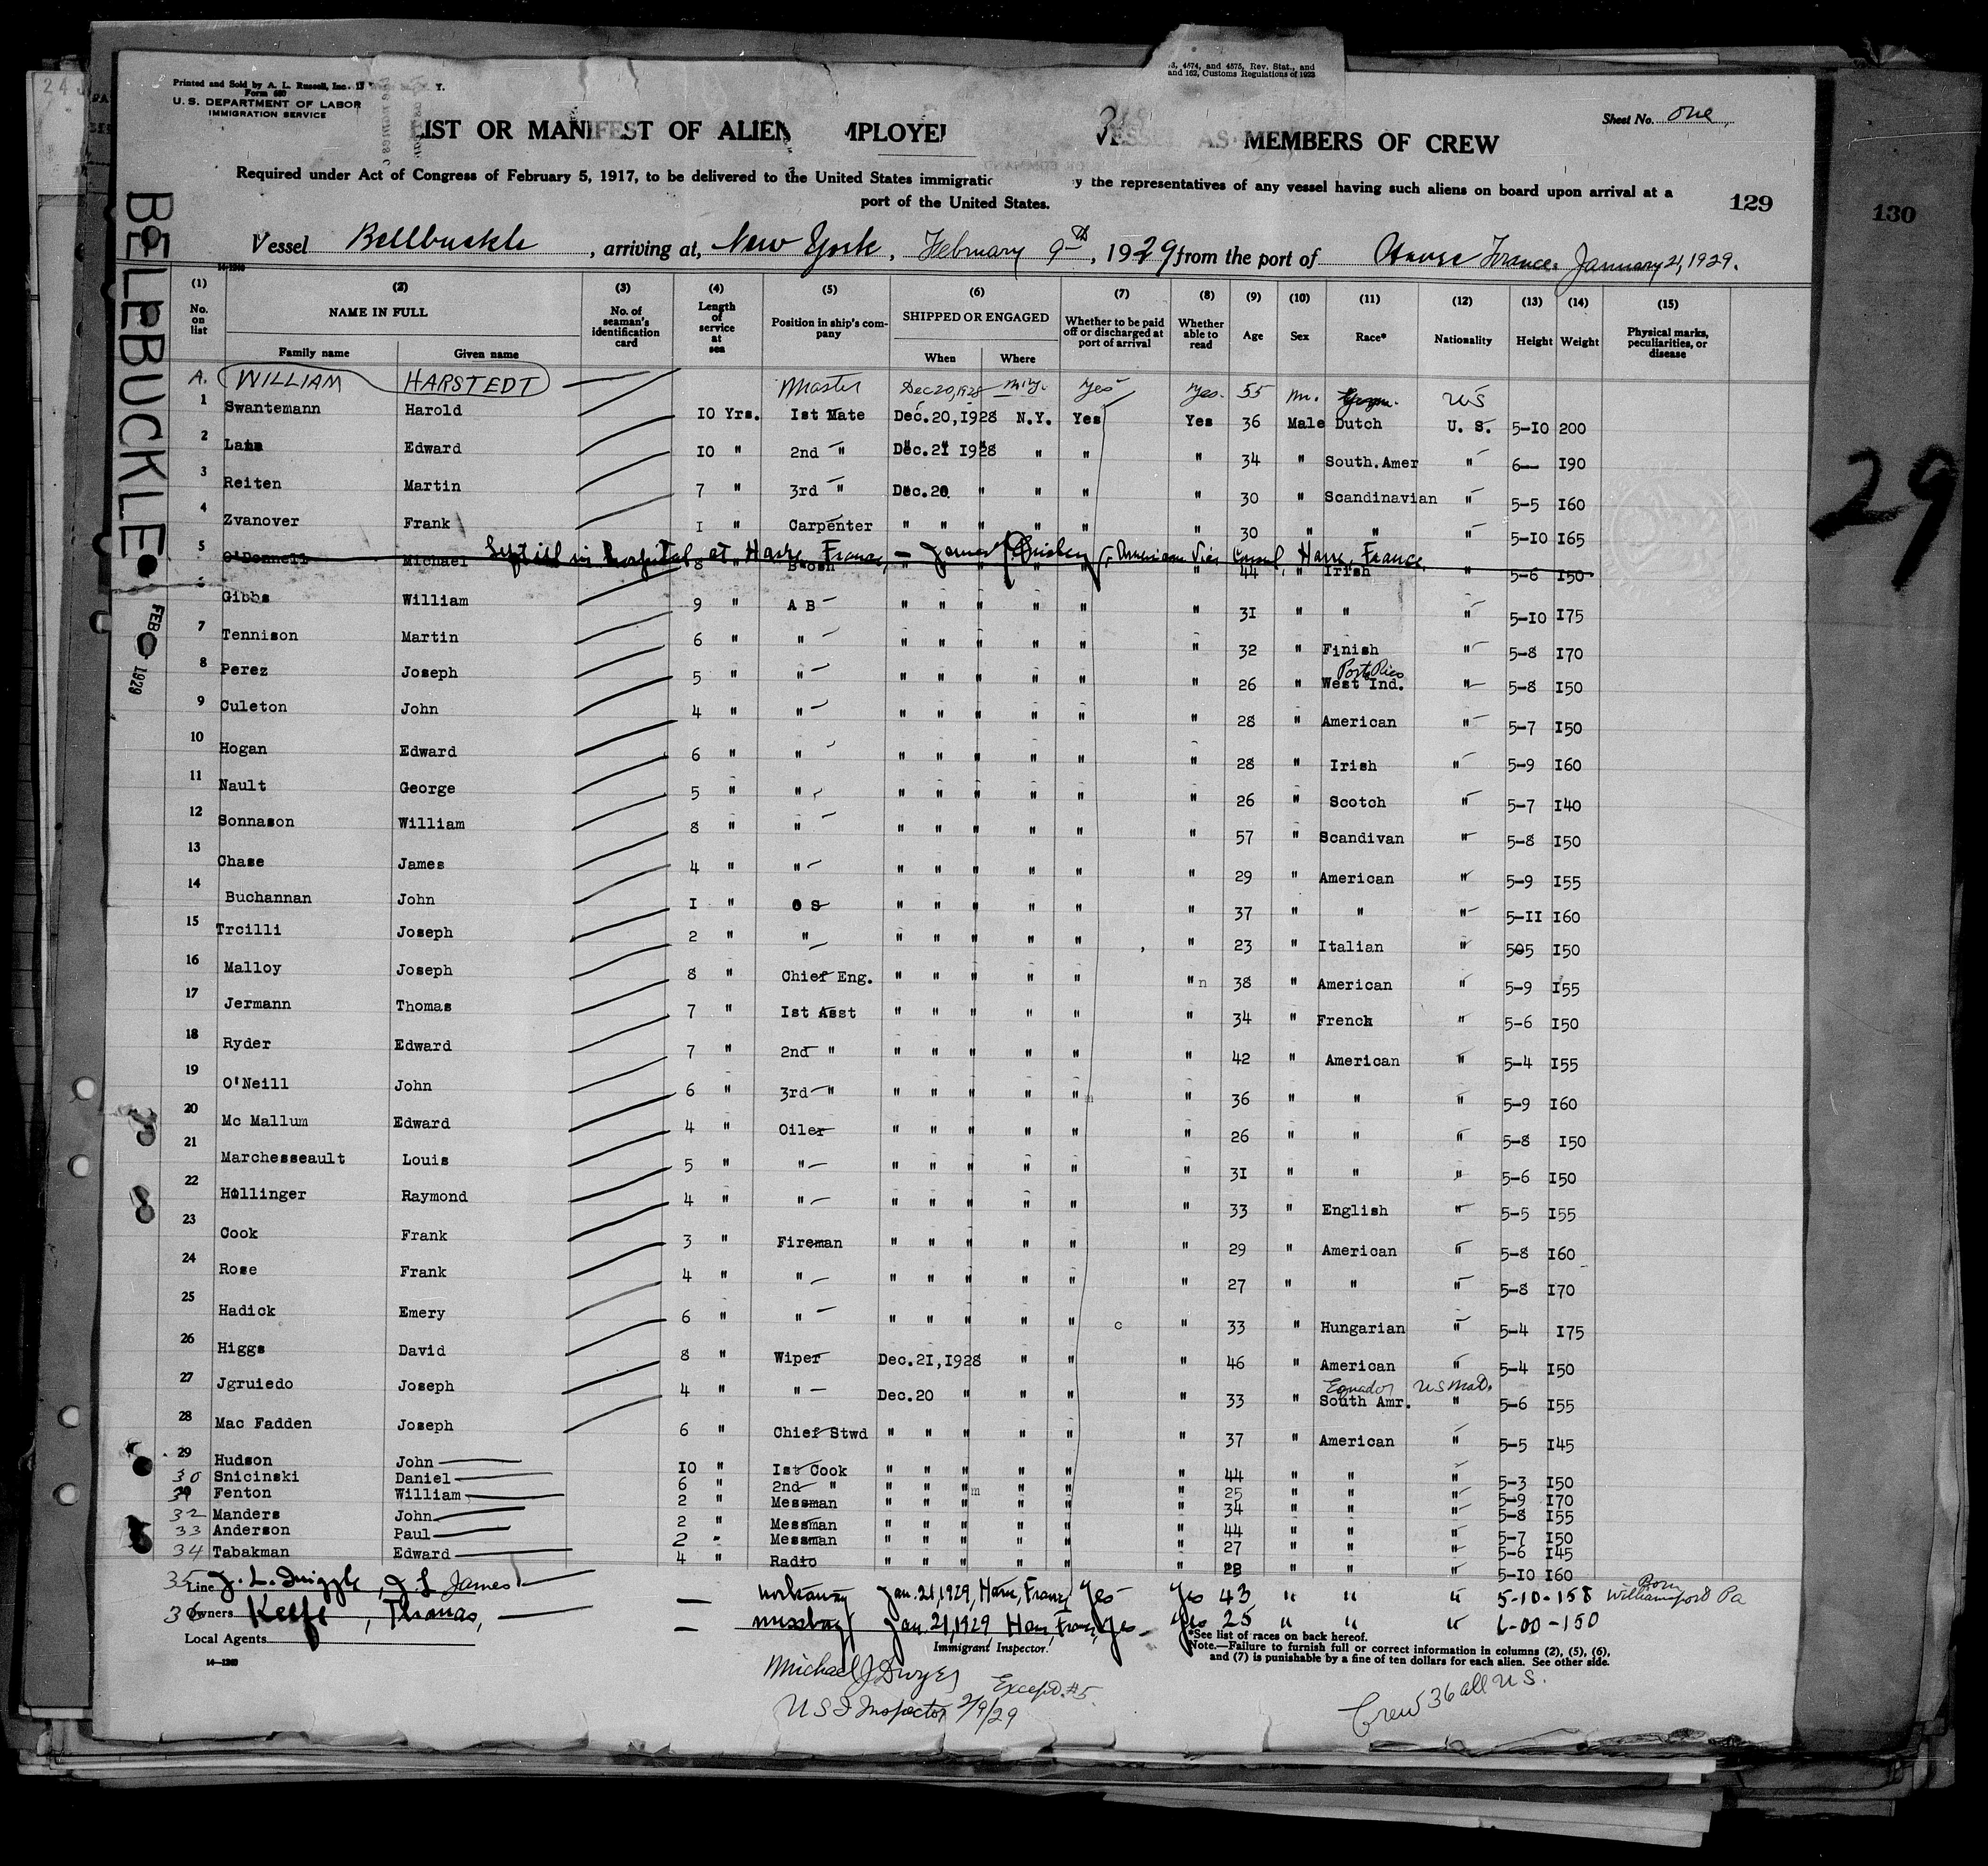 Printed and Sold by A. L. Russell, Inc.
Form 680
U. S. DEPARTMENT OF LABOR
IMMIGRATION SERVICE
4574, and 4575, Rev. Stat., and
and 162, Customs Regulations of 1923
Sheet No. one
LIST OR MANIFEST OF ALIEN MPLOYE VESSEL AS MEMBERS OF CREW
Required under Act of Congress of February 5, 1917, to be delivered to the United States immigratic y the representatives of any vessel having such aliens on board upon arrival at a
port of the United States.
129
130
29
BELLEBUCKLE
FEB 1929
Vessel Bellbuckle, arriving at, New York, February 9th, 1929 from the port of Havre France. January 21, 1929.
(1) (2) (3) (4) (5) (6) (7) (8) (9) (10) (11) (12) (13) (14) (15)
No. on list NAME IN FULL Family name Given name No. of seaman's identification card Length of service at sea Position in ship's company SHIPPED OR ENGAGED When Where Whether to be paid off or discharged at port of arrival Whether able to read Age Sex Race* Nationality Height Weight Physical marks, peculiarities, or disease
A. WILLIAM HARSTEDT Master Dec 20, 1928 N.Y. Yes Yes. 55 m. US
1 Swantemann Harold 10 Yrs. Ist Mate Dec. 20, 1928 N.Y. Yes Yes 36 Male Dutch U. S. 5-10 200
2 Edward 10 " 2nd " Dec. 21 1928 " " " 34 " South. Amer " 6— 190
3 Reiten Martin 7 " 3rd " Dec. 20 " " " " 30 " Scandinavian " 5-5 160
4 Zvanover Frank I " Carpenter " " " " " " 30 " " " 5-10 165
5 O'Donnell Michael 8 " " " " " " " 44 " Irish " 5-6 150
Left ill in hospital at Havre, France, — James American Vice Consul, Havre, France.
6 Gibbs William 9 " A B " " " " " " 31 " " " 5-10 175
7 Tennison Martin 6 " " " " " " " " 32 " Finish " 5-8 170
8 Perez Joseph 5 " " " " " " " " 26 " Porto Rico West Ind. " 5-8 150
9 Culeton John 4 " " " " " " " " 28 " American " 5-7 150
10 Hogan Edward 6 " " " " " " " " 28 " Irish " 5-9 160
11 Nault George 5 " " " " " " " " 26 " Scotch " 5-7 140
12 Sonnason William 8 " " " " " " " " 57 " Scandivan " 5-8 150
13 Chase James 4 " " " " " " " " 29 " American " 5-9 155
14 Buchannan John I " O S " " " " " " 37 " " " 5-II 160
15 Trcilli Joseph 2 " " " " " " " " 23 " Italian " 505 150
16 Malloy Joseph 8 " Chief Eng. " " " " " " 38 " American " 5-9 155
17 Jermann Thomas 7 " Ist Asst " " " " " " 34 " French " 5-6 150
18 Ryder Edward 7 " 2nd " " " " " " " 42 " American " 5-4 155
19 O'Neill John 6 " 3rd " " " " " " " 36 " " " 5-9 160
20 Mc Mallum Edward 4 " Oiler " " " " " " 26 " " " 5-8 150
21 Marchesseault Louis 5 " " " " " " " " 31 " " " 5-6 150
22 Hollinger Raymond 4 " " " " " " " " 33 " English " 5-5 155
23 Cook Frank 3 " Fireman " " " " " " 29 " American " 5-8 160
24 Rose Frank 4 " " " " " " " " 27 " " " 5-8 170
25 Hadick Emery 6 " " " " " " " " 33 " Hungarian " 5-4 175
26 Higgs David 8 " Wiper Dec. 21, 1928 " " " 46 " American " 5-4 150
27 Jgruiedo Joseph 4 " " Dec. 20 " " " " 33 " Equador South Amr. US " 5-6 155
28 Mac Fadden Joseph 6 " Chief Stwd " " " " " " 37 " American " 5-5 145
29 Hudson John 10 " Ist Cook " " " " " " 44 " " " 5-3 150
30 Snicinski Daniel 6 " 2nd " " " " " " " 25 " " " 5-9 170
31 Fenton William 2 " Messman " " " " " " 34 " " " 5-8 155
32 Manders John 2 " Messman " " " " " " 44 " " " 5-7 150
33 Anderson Paul 2 " Messman " " " " " " 27 " " " 5-6 145
34 Tabakman Edward 4 " Radio " " " " " " 28 " " " 5-10 160
35 Line J. L. James — workaway Jan. 21, 1929, Havre, France Yes Yes 43 " " " 5-10-158 Born Williamsport Pa
36 Owners Keefe, Thomas, — messboy Jan. 21, 1929 Havre, France, Yes Yes 25 " " " 6-00-150
Local Agents
Immigrant Inspector.
*See list of races on back hereof.
Note.—Failure to furnish full or correct information in columns (2), (5), (6),
and (7) is punishable by a fine of ten dollars for each alien. See other side.
14—1240
Michael J Dwyer
Except. #5.
U S I Inspector 2/9/29
Crew 36 all U S.